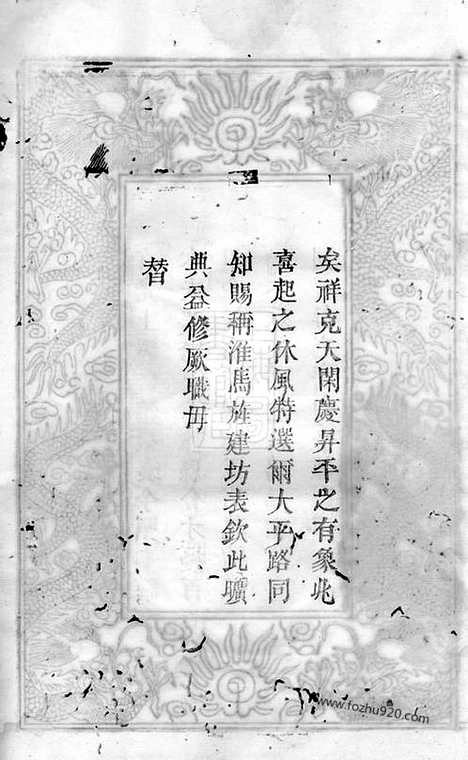 矣祥克天閑慶昇平之有象兆
喜起之休風特選爾大平路同
知賜稱淮馬旌建坊表欽此曠
典益修厥職毋
替
www.fozhu920.com